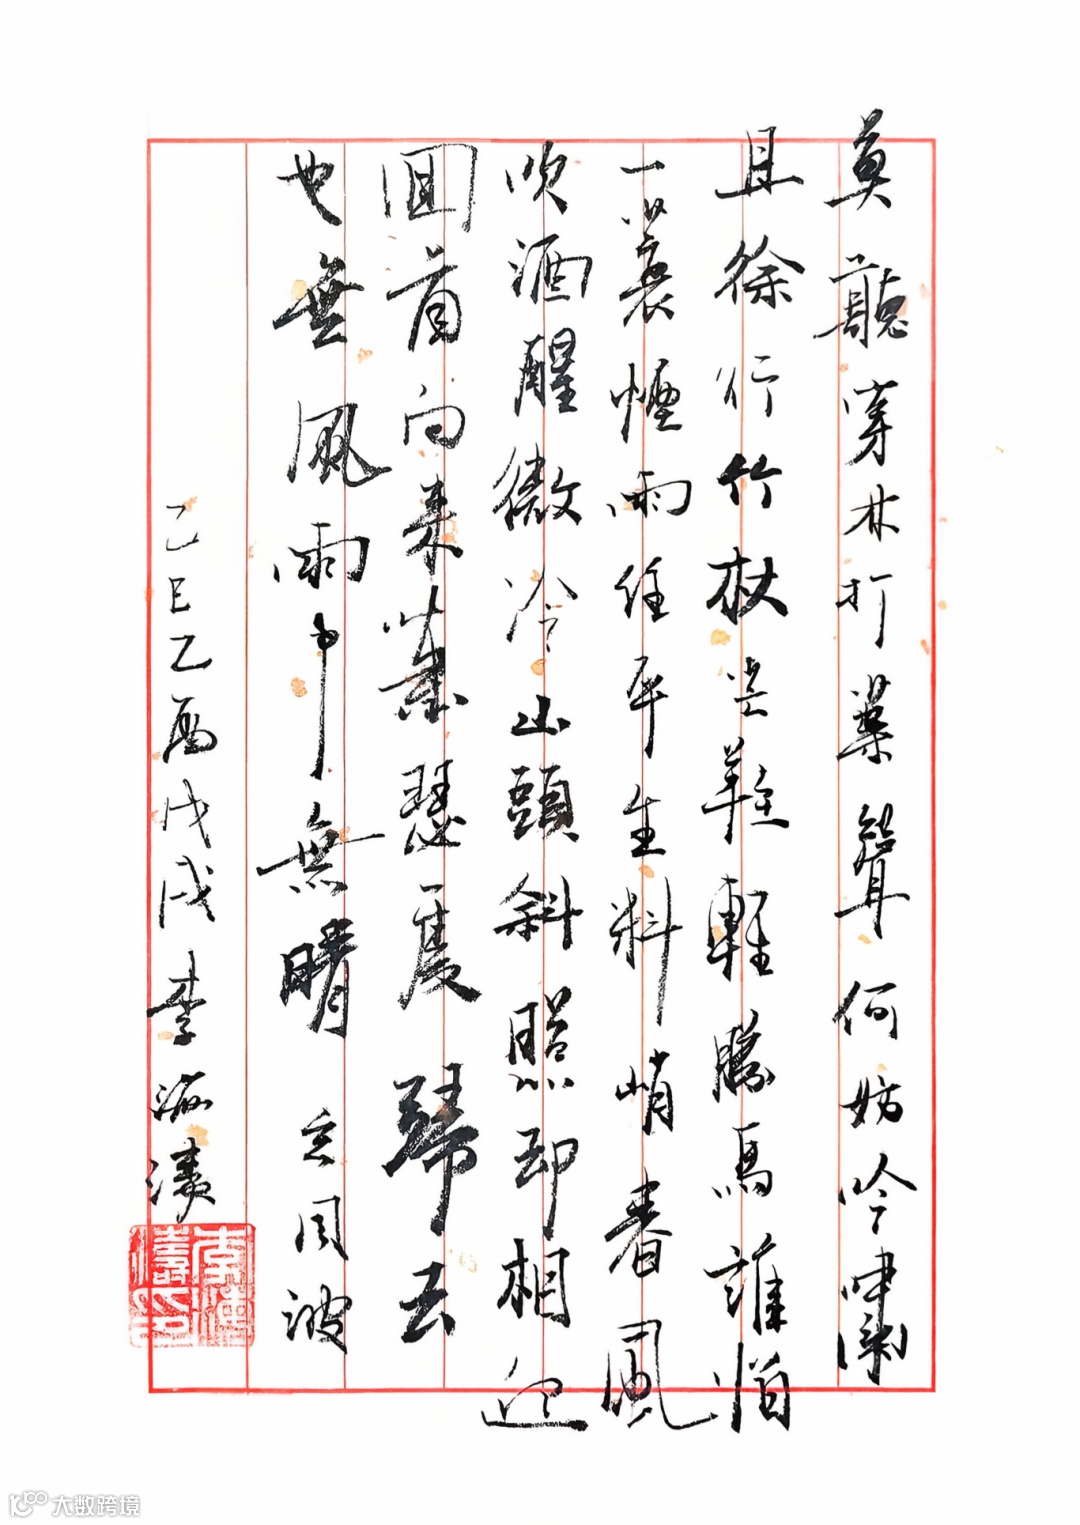 莫聽穿林打葉聲何妨吟嘯
且徐行竹杖芒鞋輕勝馬誰怕
一蓑煙雨任平生料峭春風
吹酒醒微冷山頭斜照却相迎
回首向來蕭瑟處歸去
也無風雨也無晴 定风波
乙巳乙酉戊戌 李
大数跨境